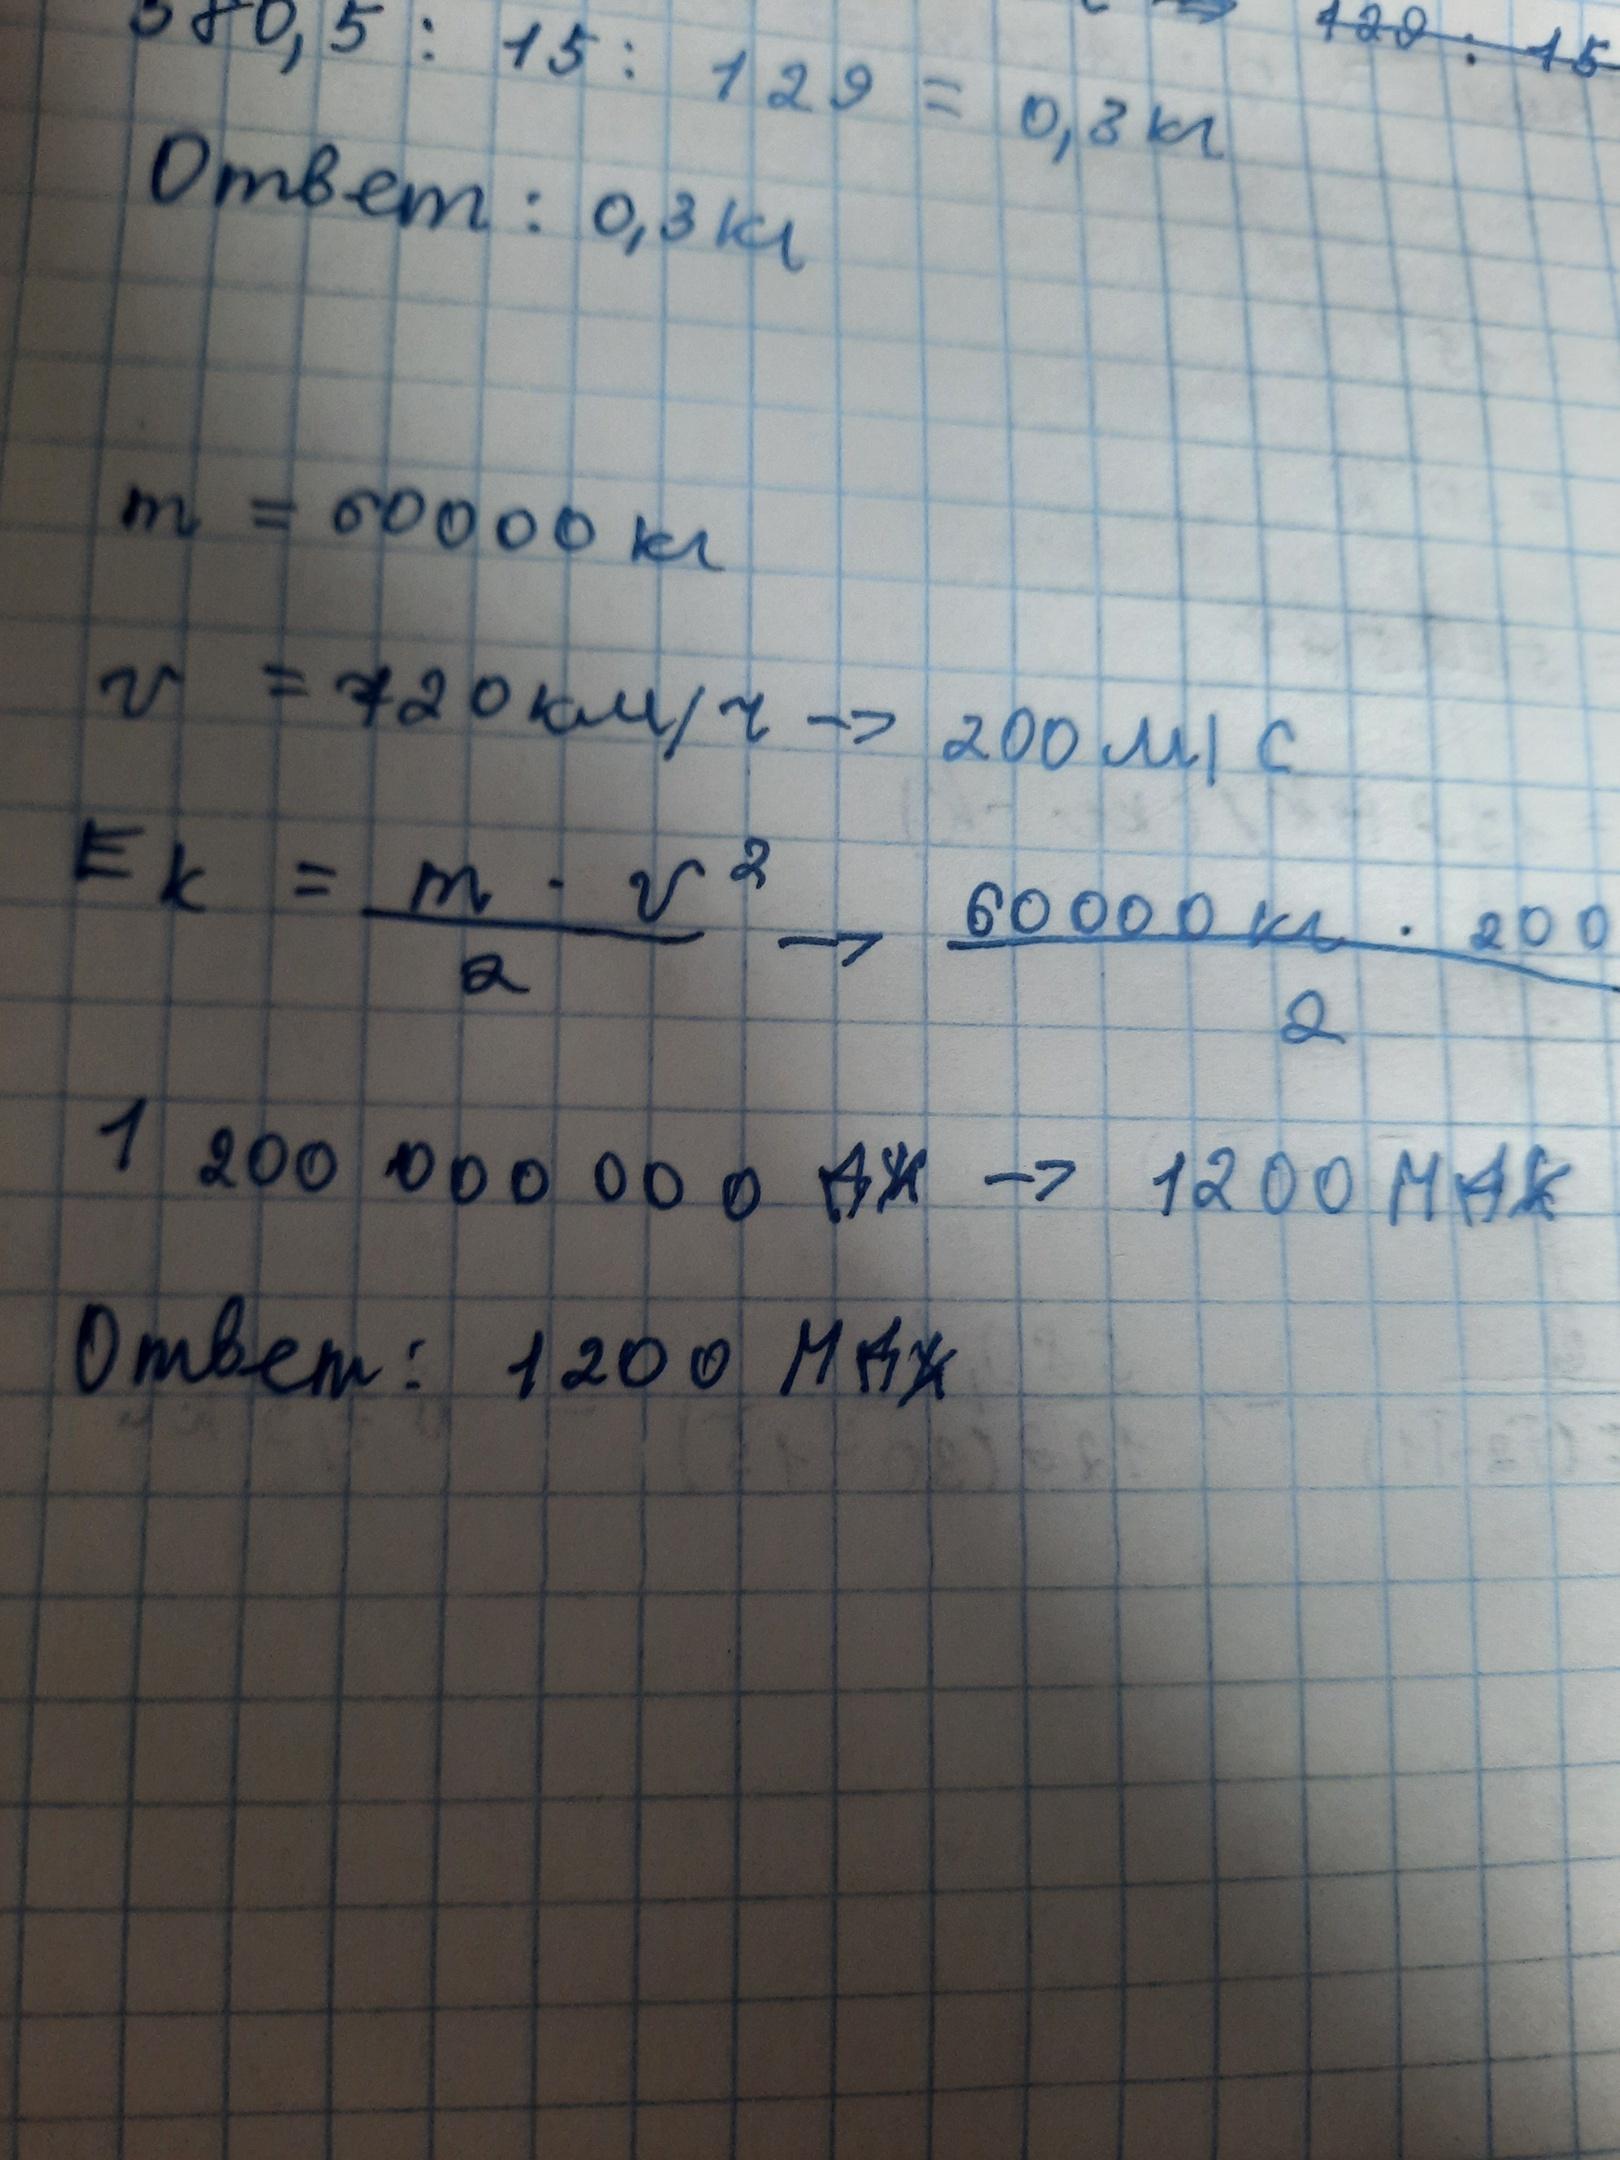 580,5 : 15 : 129 = 0,3 кг
129 : 15
Ответ : 0,3 кг
m = 60000 кг
v = 720 км/ч -> 200 м/с
Ek = m · v² / 2 -> 60000 кг · 200 / 2
1 200 000 000 Дж -> 1200 МДж
Ответ : 1200 МДж